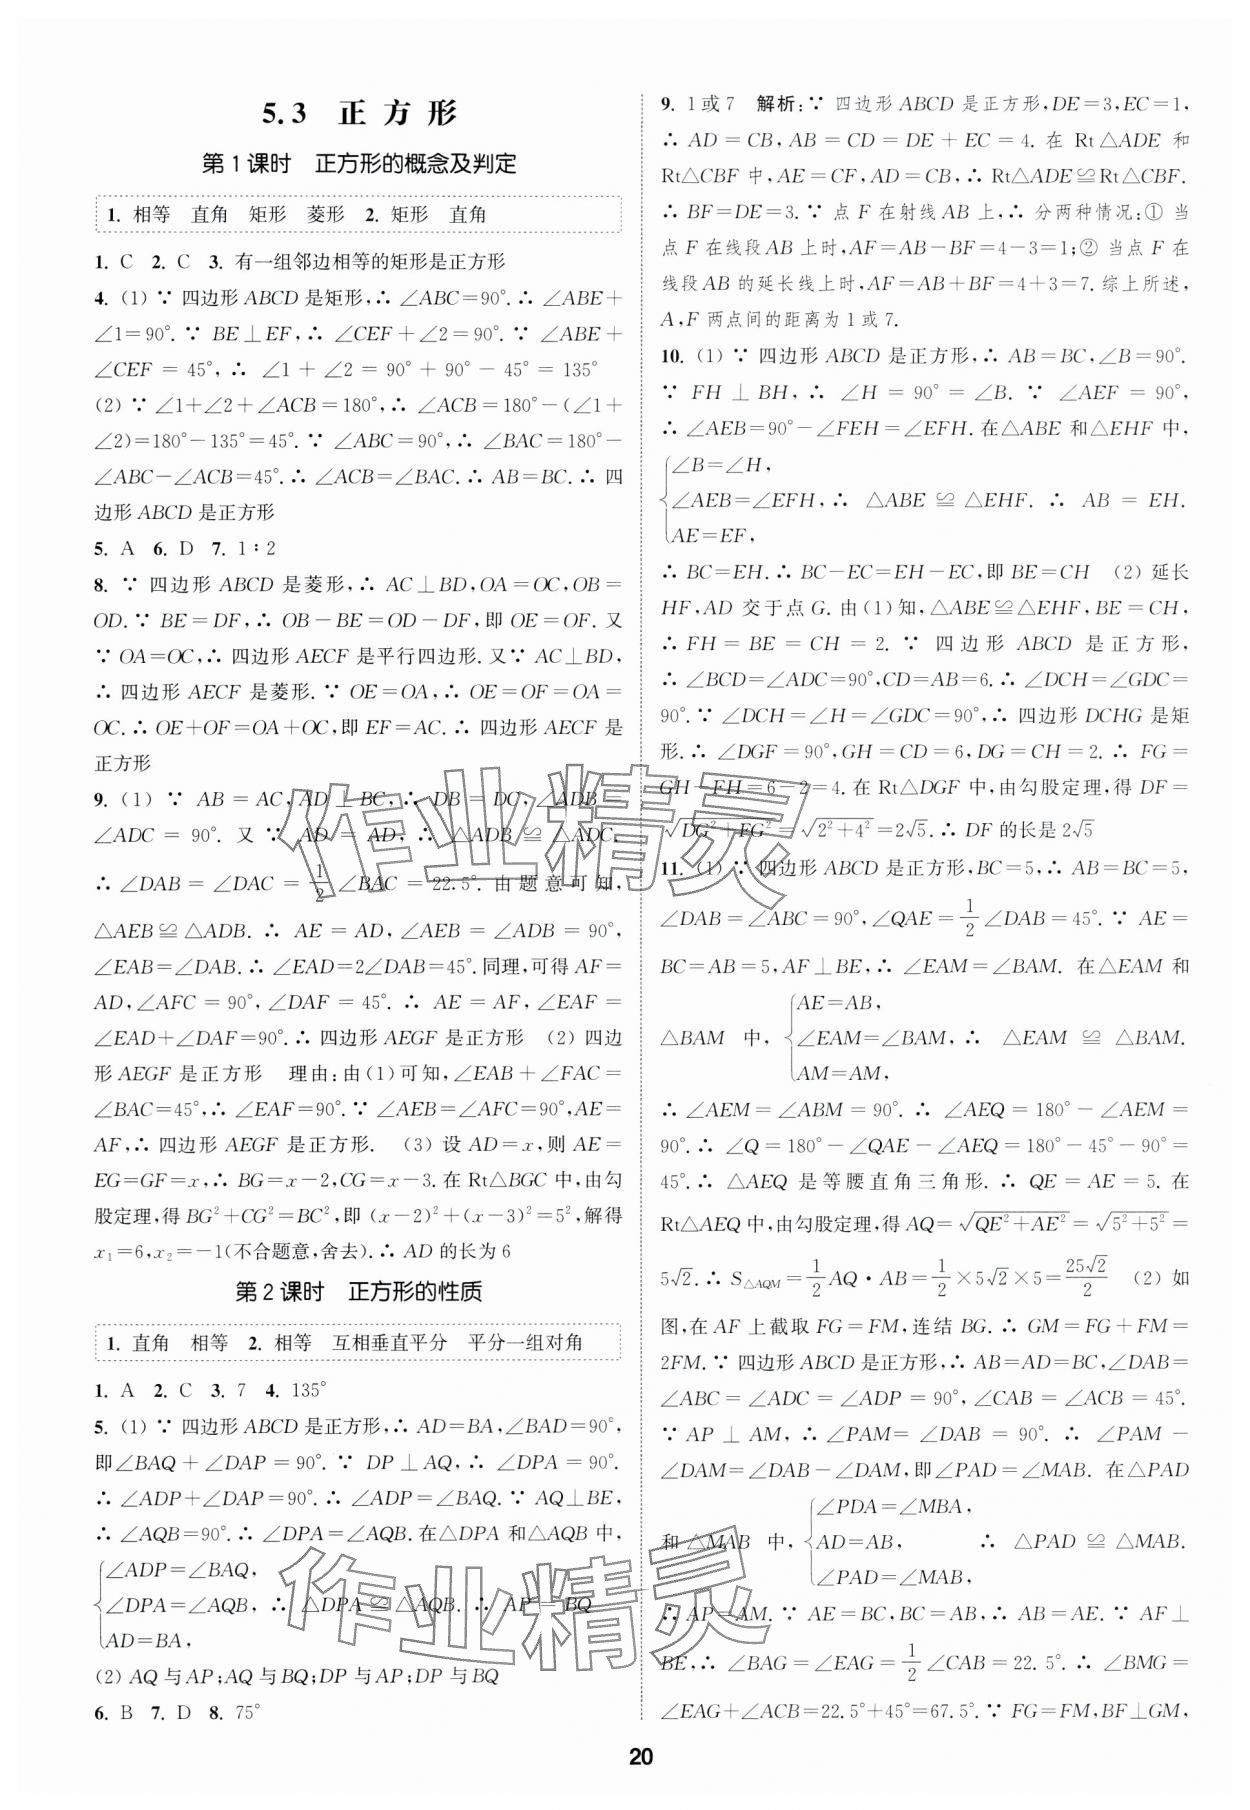 5.3 正方形
第1课时 正方形的概念及判定
1. 相等 直角 矩形 菱形 2. 矩形 直角
1. C 2. C 3. 有一组邻边相等的矩形是正方形
4. (1) ∵ 四边形ABCD是矩形,∴ ∠ABC=90°.∴ ∠ABE+
∠1=90°.∵ BE⊥EF,∴ ∠CEF+∠2=90°.∵ ∠ABE+
∠CEF = 45°,∴ ∠1+∠2 = 90°+90°-45° = 135°
(2) ∵ ∠1+∠2+∠ACB=180°,∴ ∠ACB=180°-(∠1+
∠2)=180°-135°=45°.∵ ∠ABC=90°,∴ ∠BAC=180°-
∠ABC-∠ACB=45°.∴ ∠ACB=∠BAC.∴ AB=BC.∴ 四
边形ABCD是正方形
5. A 6. D 7. 1∶2
8. ∵ 四边形ABCD是菱形,∴ AC⊥BD,OA=OC,OB=
OD.∵ BE=DF,∴ OB-BE=OD-DF,即OE=OF.又
∵ OA=OC,∴ 四边形AECF是平行四边形.又∵ AC⊥BD,
∴ 四边形AECF是菱形.∵ OE=OA,∴ OE=OF=OA=
OC.∴ OE+OF=OA+OC,即EF=AC.∴ 四边形AECF是
正方形
9. (1) ∵ AB=AC,AD⊥BC,∴ DB=DC,∠ADB=
∠ADC = 90°. 又 ∵ AD = AD,∴ △ADB ≌ △ADC.
∴ ∠DAB = ∠DAC = 1/2 ∠BAC = 22.5°. 由题意可知,
△AEB≌△ADB.∴ AE=AD,∠AEB=∠ADB=90°,
∠EAB=∠DAB.∴ ∠EAD=2∠DAB=45°.同理,可得AF=
AD,∠AFC=90°,∠DAF=45°.∴ AE=AF,∠EAF=
∠EAD+∠DAF=90°.∴ 四边形AEGF是正方形 (2) 四边
形AEGF是正方形 理由:由(1)可知,∠EAB+∠FAC=
∠BAC=45°,∴ ∠EAF=90°.∵ ∠AEB=∠AFC=90°,AE=
AF,∴ 四边形AEGF是正方形. (3) 设AD=x,则AE=
EG=GF=x,∴ BG=x-2,CG=x-3.在Rt△BGC中,由勾
股定理,得BG²+CG²=BC²,即(x-2)²+(x-3)²=5²,解得
x₁=6,x₂=-1(不合题意,舍去).∴ AD的长为6
第2课时 正方形的性质
1. 直角 相等 2. 相等 互相垂直平分 平分一组对角
1. A 2. C 3. 7 4. 135°
5. (1) ∵ 四边形ABCD是正方形,∴ AD=BA,∠BAD=90°,
即∠BAQ+∠DAP=90°.∵ DP⊥AQ,∴ ∠DPA=90°.
∴ ∠ADP+∠DAP=90°.∴ ∠ADP=∠BAQ.∵ AQ⊥BE,
∴ ∠AQB=90°.∴ ∠DPA=∠AQB.在△DPA和△AQB中,
∠ADP=∠BAQ,
∠DPA=∠AQB,∴ △DPA≌△AQB.∴ AP=BQ
AD=BA,
(2) AQ与AP;AQ与BQ;DP与AP;DP与BQ
6. B 7. D 8. 75°
9. 1或7 解析:∵ 四边形ABCD是正方形,DE=3,EC=1,
∴ AD=CB,AB=CD=DE+EC=4.在Rt△ADE和
Rt△CBF中,AE=CF,AD=CB,∴ Rt△ADE≌Rt△CBF.
∴ BF=DE=3.∵ 点F在射线AB上,∴ 分两种情况:① 当
点F在线段AB上时,AF=AB-BF=4-3=1;② 当点F在
线段AB的延长线上时,AF=AB+BF=4+3=7.综上所述,
A,F两点间的距离为1或7.
10. (1) ∵ 四边形ABCD是正方形,∴ AB=BC,∠B=90°.
∵ FH⊥BH,∴ ∠H=90°=∠B.∵ ∠AEF=90°,
∴ ∠AEB=90°-∠FEH=∠EFH.在△ABE和△EHF中,
∠B=∠H,
∠AEB=∠EFH,∴ △ABE≌△EHF.∴ AB=EH.
AE=EF,
∴ BC=EH.∴ BC-EC=EH-EC,即BE=CH (2) 延长
HF,AD交于点G.由(1)知,△ABE≌△EHF,BE=CH,
∴ FH=BE=CH=2.∵ 四边形ABCD是正方形,
∴ ∠BCD=∠ADC=90°,CD=AB=6.∴ ∠DCH=∠GDC=
90°.∵ ∠DCH=∠H=∠GDC=90°,∴ 四边形DCHG是矩
形.∴ ∠DGF=90°,GH=CD=6,DG=CH=2.∴ FG=
GH-FH=6-2=4.在Rt△DGF中,由勾股定理,得DF=
√(DG²+FG²)=√(2²+4²)=2√5.∴ DF的长是2√5
11. (1) ∵ 四边形ABCD是正方形,BC=5,∴ AB=BC=5,
∠DAB=∠ABC=90°,∠QAE=1/2∠DAB=45°.∵ AE=
BC=AB=5,AF⊥BE,∴ ∠EAM=∠BAM.在△EAM和
AE=AB,
△BAM中, ∠EAM=∠BAM,∴ △EAM≌△BAM.
AM=AM,
∴ ∠AEM=∠ABM=90°.∴ ∠AEQ=180°-∠AEM=
90°.∴ ∠Q=180°-∠QAE-∠AEQ=180°-45°-90°=
45°.∴ △AEQ是等腰直角三角形.∴ QE=AE=5.在
Rt△AEQ中,由勾股定理,得AQ=√(QE²+AE²)=√(5²+5²)=
5√2.∴ S△AQM=1/2AQ·AB=1/2×5√2×5=25√2/2 (2) 如
图,在AF上截取FG=FM,连结BG.∴ GM=FG+FM=
2FM.∵ 四边形ABCD是正方形,∴ AB=AD=BC,∠DAB=
∠ABC=∠ADC=∠ADP=90°,∠CAB=∠ACB=45°.
∵ AP⊥AM,∴ ∠PAM=∠DAB=90°.∴ ∠PAM-
∠DAM=∠DAB-∠DAM,即∠PAD=∠MAB.在△PAD
∠PDA=∠MBA,
和△MAB中, AD=AB, ∴ △PAD≌△MAB.
∠PAD=∠MAB,
∴ AP=AM.∵ AE=BC,BC=AB,∴ AB=AE.∵ AF⊥
BE,∴ ∠BAG=∠EAG=1/2∠CAB=22.5°.∴ ∠BMG=
∠EAG+∠ACB=22.5°+45°=67.5°.∵ FG=FM,BF⊥GM,
20
作业精灵
作业精灵